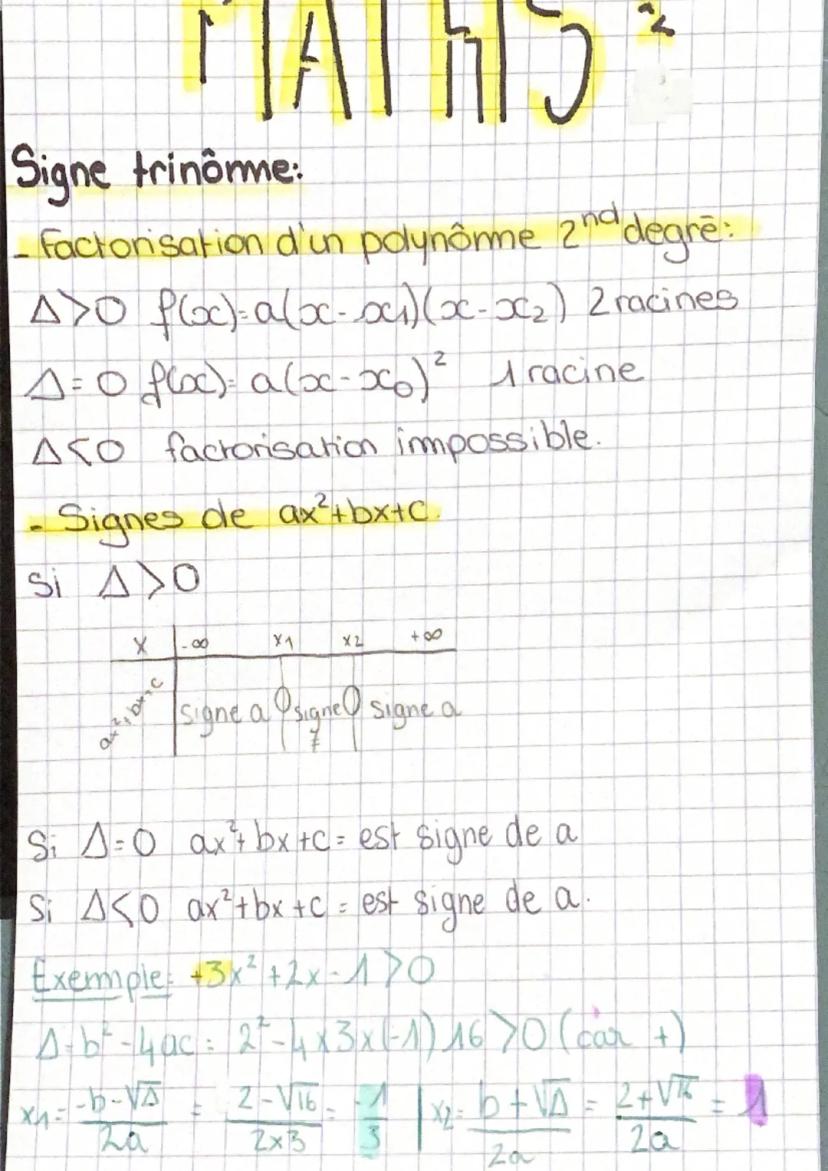 MATHS 2
Signe trinôme:
- Factorisation d'un polynôme 2nd degré:
Δ>0 f(x)=a(x-x1)(x-x2) 2 racines
Δ=0 f(x)= a(x-x0)² 1 racine
Δ<0 factorisation impossible.
- Signes de ax²+bx+c.
Si Δ>0
x -∞ x1 x2 +∞
ax²+bx+c signe a 0 signe 0 signe a
≠
Si Δ=0 ax²+bx+c = est signe de a
Si Δ<0 ax²+bx+c = est signe de a.
Exemple: +3x²+2x-1>0
Δ=b²-4ac = 2²-4x3x(-1) 16>0 (car +)
x1= -b-√Δ/2a = 2-√16/2x3 = -1/3 | x2= b+√Δ/2a = 2+√16/2a = 1